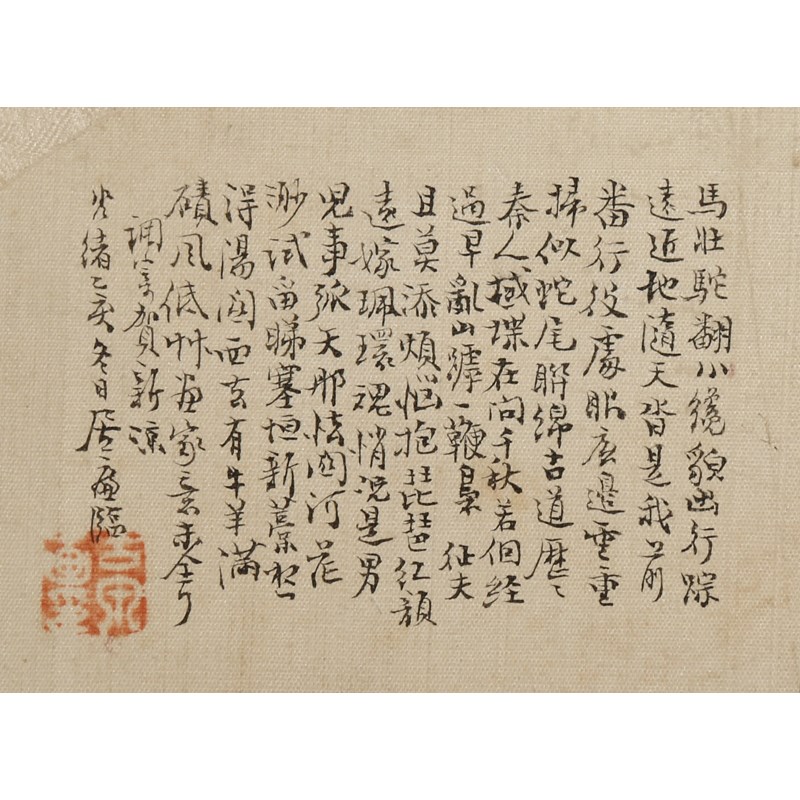 馬壯駝翻小纔貌出行踪
遠近地隨天沓是我前
番行役處眼底邊雲重
掃似蛇尾聯綿古道歷〻
秦人堞在問千秋若個經
過早亂山罅一鞭裊 征夫
且莫添煩惱抱琵琶紅顏
遠嫁珮環魂悄況是男
兒事弧矢那怯關河花
渺試留睇塞垣新藁
淂湯關西去有牛羊滿
磧風低艸畫家意未全了
調寄賀新涼
光緒乙亥冬日居廉臨
古泉